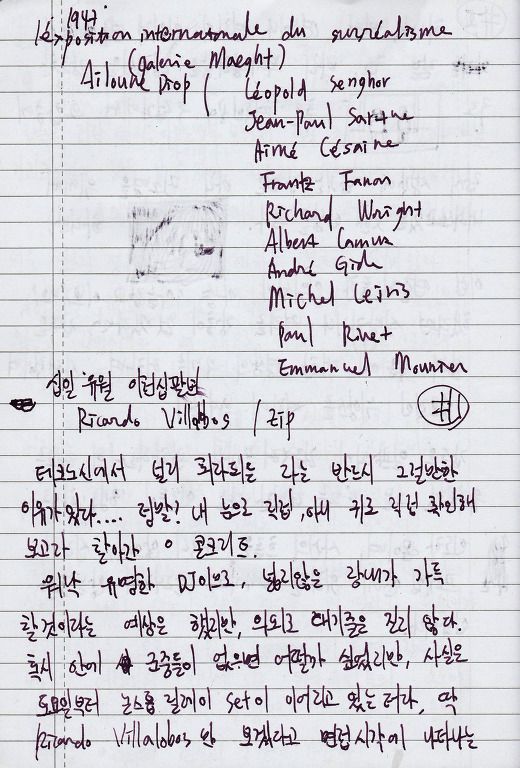 1947
l'éxposition internationale du surréalisme
(Galerie Maeght)
Ailoune Diop / Léopold Senghor
Jean-Paul Sartre
Aimé Césaire
Frantz Fanon
Richard Wright
Albert Camus
André Gide
Michel Leiris
Paul Rivet
Emmanuel Mounier
십일 유월 이천십팔년
#1
Ricardo Villalobos / Zip
테크노신에서 널리 회자되는 라는 반드시 그럴만한
이유가 있다.... 텀발? 내 눈으로 직접, 아니 귀로 직접 확인해
보고자 찾아가 콘크리트.
워낙 유명한 DJ이므로, 넓지않은 장내가 가득
할것이라는 예상은 했지만, 의외로 대기줄은 길지 않다.
혹시 안에 군중들이 없으면 어떨까 싶었지만, 사실은
토요일부터 논스톱 릴레이 set이 이어지고 있는 터라, 딱
Ricardo Villalobos 만 보겠다고 면접시각에 나타나는